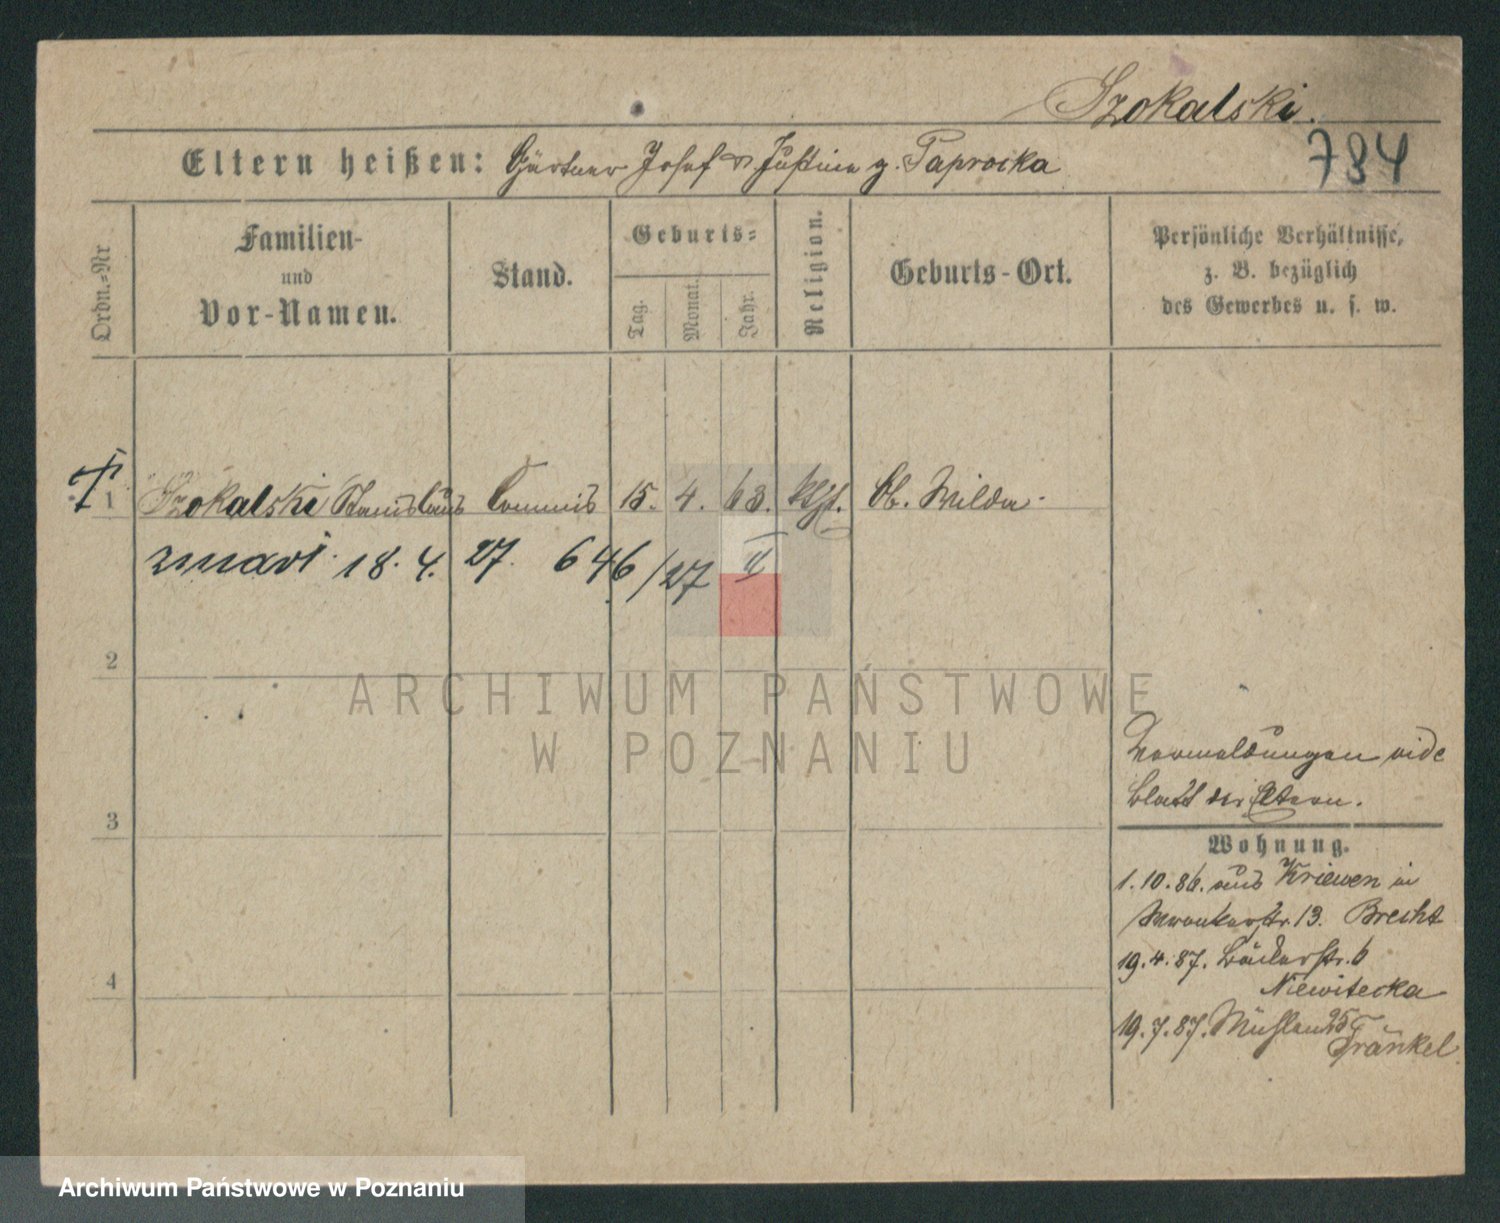 Szokalski.
784
Eltern heißen: Gärtner Josef u. Justina g. Paprocka
Ordn.-Nr
Familien- und Vor-Namen.
Stand.
Geburts-
Tag.
Monat.
Jahr.
Religion.
Geburts-Ort.
Persönliche Verhältnisse,
z. B. bezüglich
des Gewerbes u. s. w.
1 Szokalski Stanislaus Commis 15. 4. 63. kth. Ob. Wilda.
zmarł 18. 4. 27. 646/27 II
2
ARCHIWUM PAŃSTWOWE
W POZNANIU
3
4
Vormeldungen vide
Blatt der Eltern.
Wohnung.
1.10.86. aus Kriewen in
Wronkerstr. 13. Brecht
19.4.87. Bäckerstr. 6
Niewitecka
19.7.87. Mühlen 25
Fränkel
Archiwum Państwowe w Poznaniu